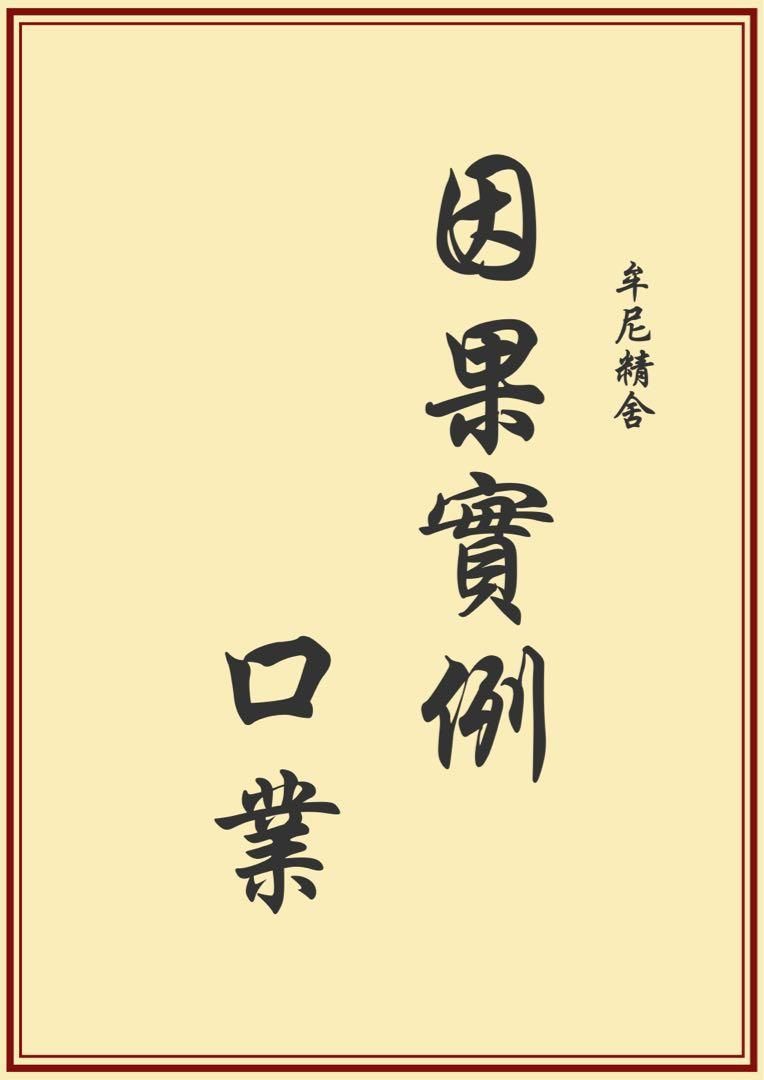 牟尼精舍
因果實例
口業